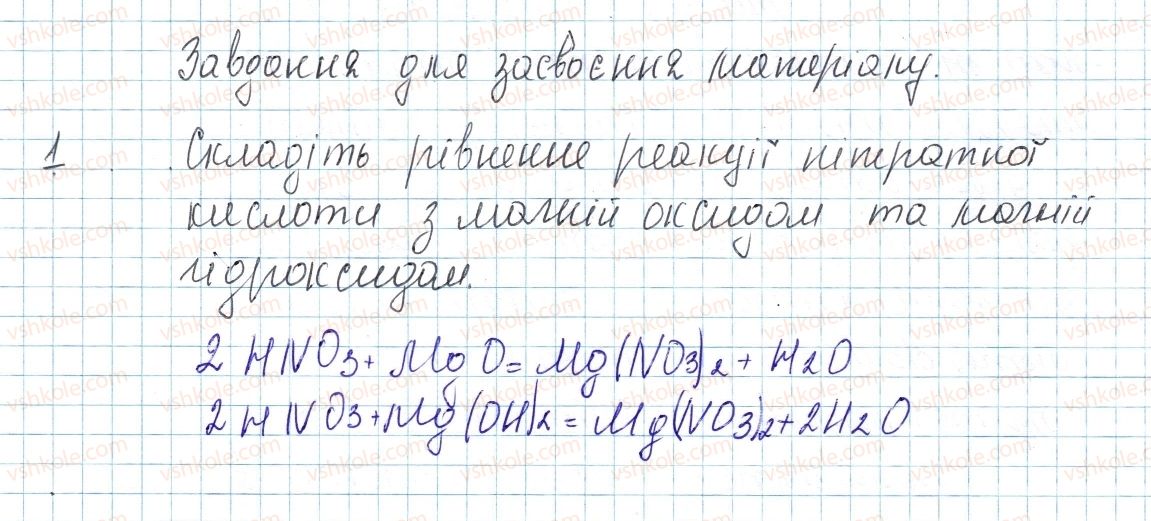 Завдання для засвоєння матеріалу.
1 Складіть рівнення реакції нітратної
кислоти з магній оксидом та магній
гідроксидом.
2HNO3 + MgO = Mg(NO3)2 + H2O
2HNO3 + Mg(OH)2 = Mg(NO3)2 + 2H2O
vshkole.com